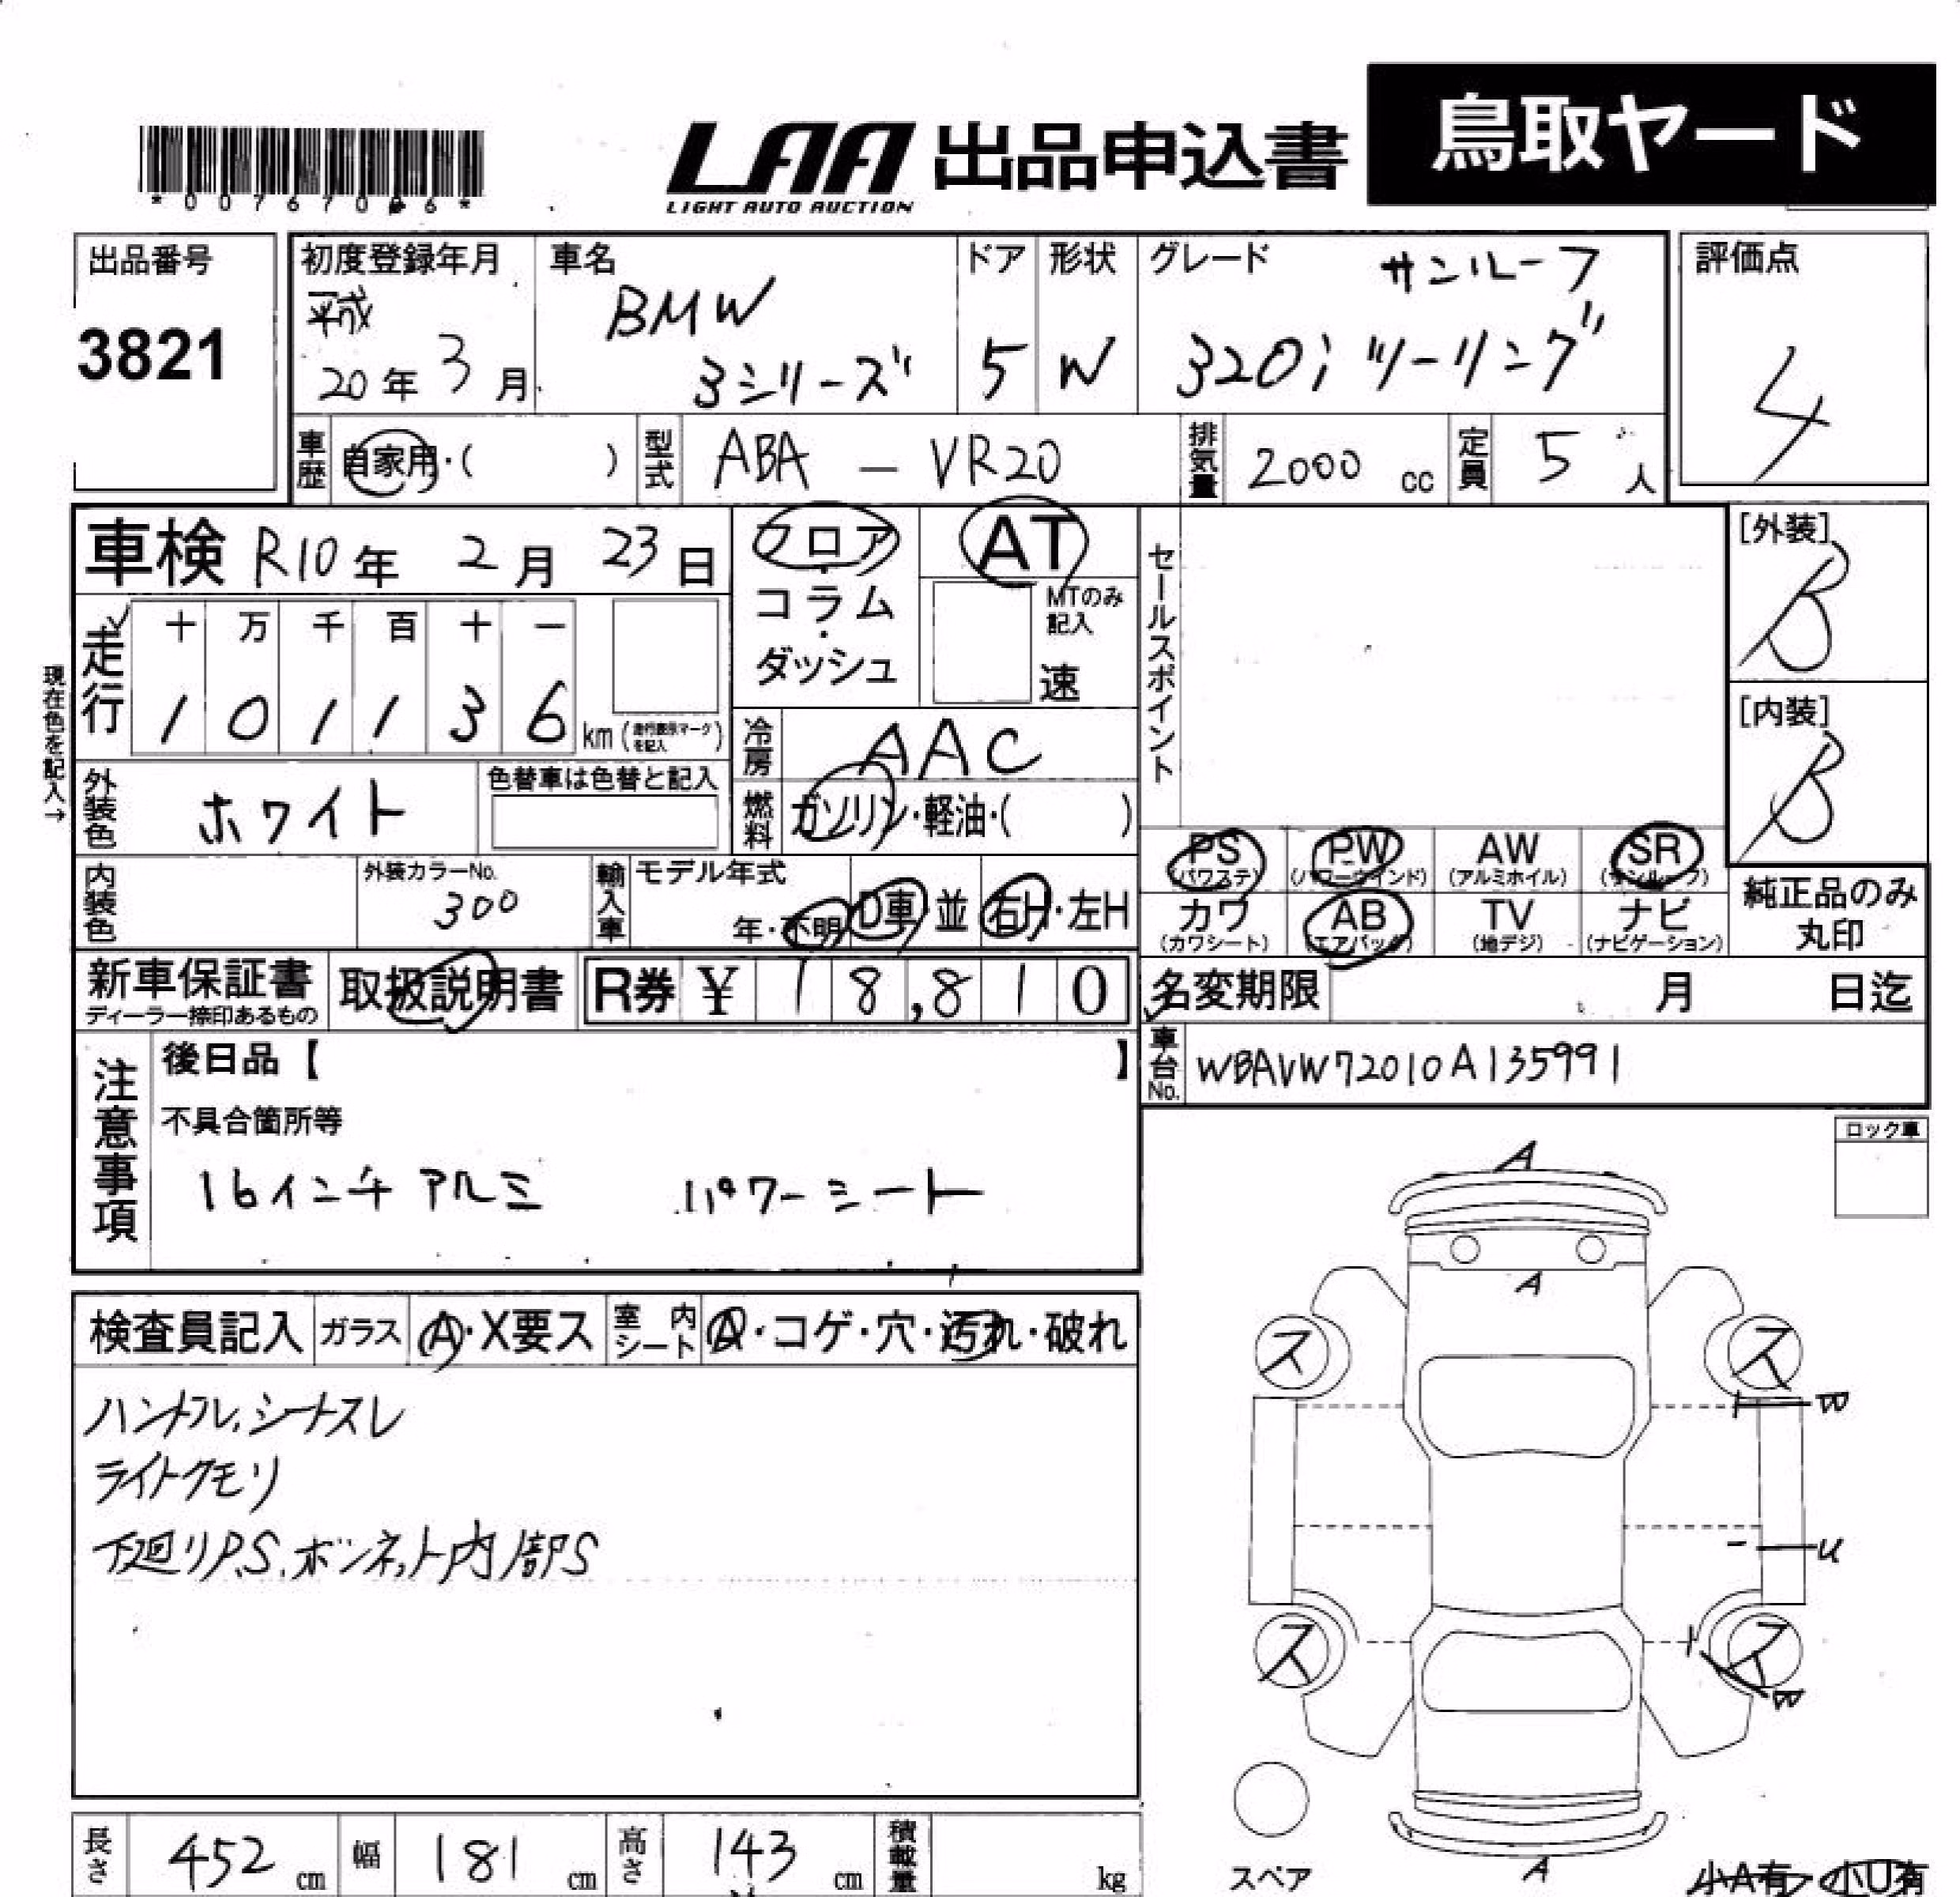 *00767006*
LAA 出品申込書 鳥取ヤード
LIGHT AUTO AUCTION
出品番号 初度登録年月 車名 ドア 形状 グレード サンルーフ 評価点
3821 平成 20年 3月 BMW 3シリーズ 5 W 320i ツーリング 4
車歴 自家用・( ) 型式 ABA - VR20 排気量 2000 cc 定員 5 人
車検 R10年 2月 23日 フロア・コラム・ダッシュ AT
MTのみ記入 速
セールスポイント
[外装] B
[内装] B
現在色を記入→
走行 十 万 千 百 十 一
1 0 1 1 3 6 km (走行表示マークを記入)
冷房 AAC
外装色 ホワイト 色替車は色替と記入
燃料 ガソリン・軽油・( )
内装色 外装カラーNo. 300 輸入車 モデル年式 年・不明 D車・並 右H・左H
PS (パワステ) PW (パワーウインド) AW (アルミホイル) SR (サンルーフ)
カワ (カワシート) AB (エアバック) TV (地デジ) ナビ (ナビゲーション)
純正品のみ丸印
新車保証書 ディーラー捺印あるもの 取扱説明書 R券 ¥ 18,810
名変期限 月 日迄
車台No. WBAVW72010A135991
注意事項 後日品【 】
不具合箇所等
16インチアルミ パワーシート
ロック車
検査員記入 ガラス A・X要ス 室内シート A・コゲ・穴・汚れ・破れ
ハンドル、シートスレ
ライトクモリ
下廻りP.S、ボンネット内部S
A
A
ス ス
W
U
ス ス
W
A
スペア
小A有 小U有
長さ 452 cm 幅 181 cm 高さ 143 cm 積載量 kg